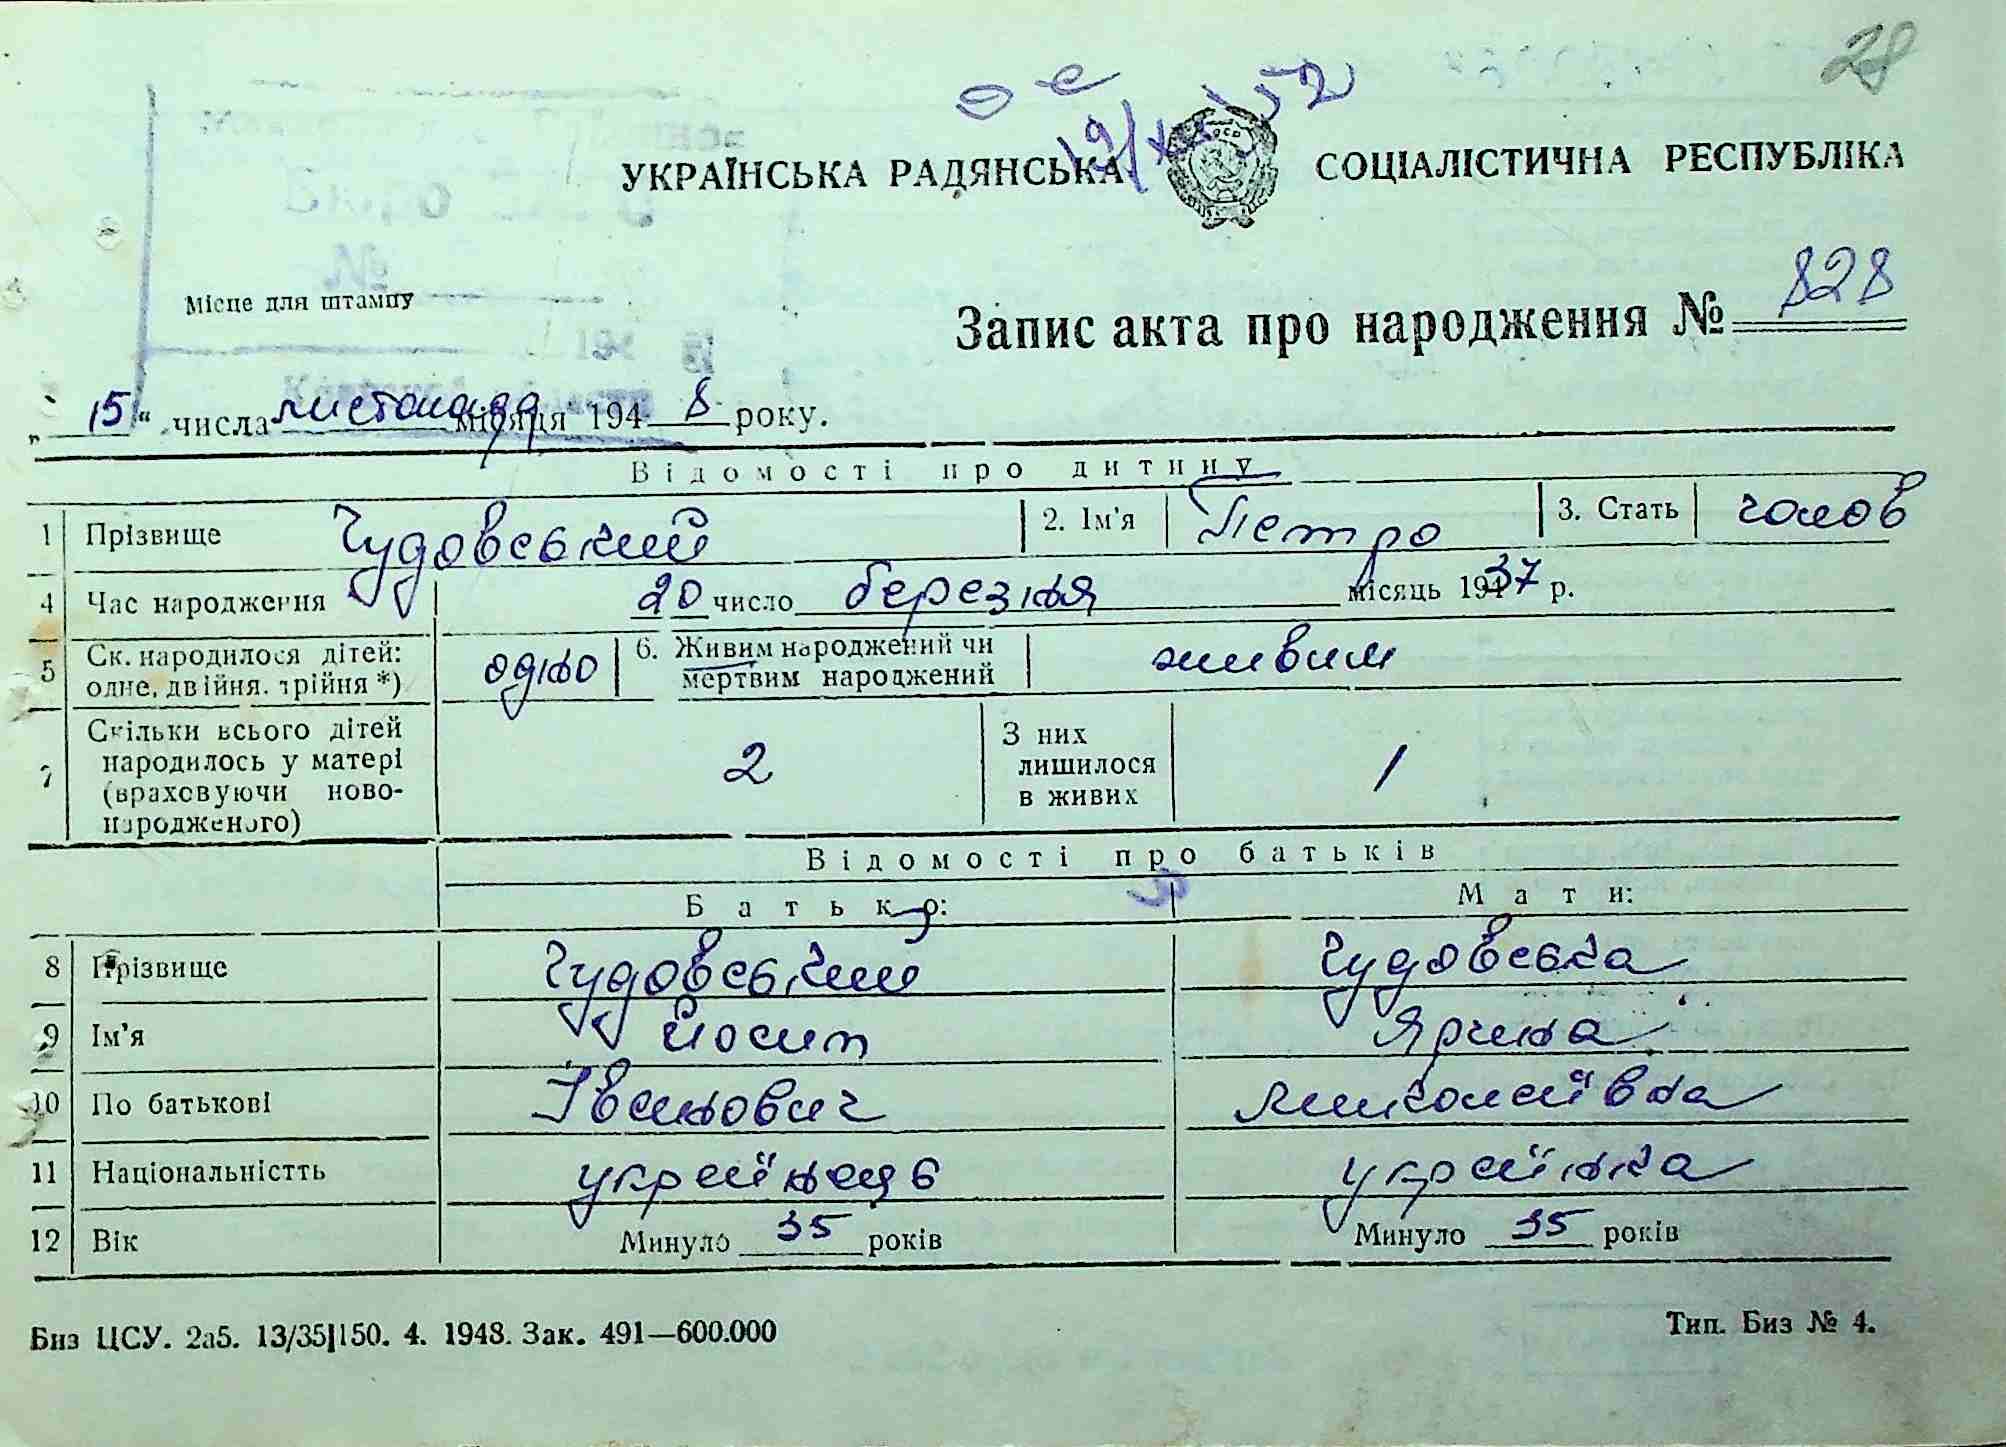 28
УКРАЇНСЬКА РАДЯНСЬКА СОЦІАЛІСТИЧНА РЕСПУБЛІКА
Місце для штампу
Запис акта про народження № 828
„ 15 “ числа листопада місяця 194 8 року.
Відомості про дитину
1 Прізвище Чудовський 2. Ім'я Петро 3. Стать чолов
4 Час народження 20 число березня місяць 1937 р.
5 Ск. народилося дітей: одне, двійня, трійня *) одно 6. Живим народжений чи мертвим народжений живим
7 Скільки всього дітей народилось у матері (враховуючи ново-народженого) 2 З них лишилося в живих 1
Відомості про батьків
Батько: Мати:
8 Прізвище Чудовський Чудовська
9 Ім'я Йосип Ярина
10 По батькові Іванович Миколаївна
11 Національністть українець українка
12 Вік Минуло 35 років Минуло 35 років
Биз ЦСУ. 2а5. 13/35|150. 4. 1948. Зак. 491—600.000 Тип. Биз № 4.